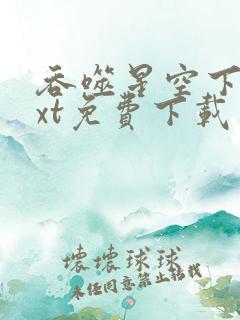 吞噬星空下
xt免费下载
坏坏球球
未经同意禁止转载